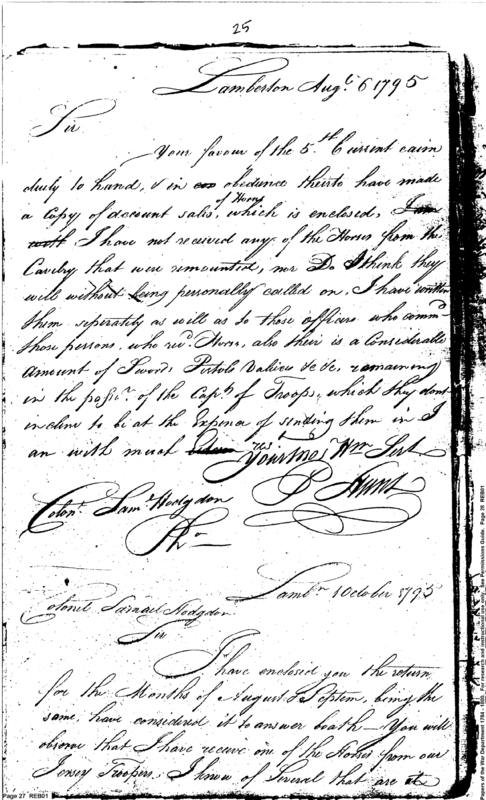 25
Lamberton Augt. 6 1795
Sir
Your favour of the 5th Current caim
duly to hand, & in obedience theirto have made
a Copy of account sales, of Horses which is enclosed, I am
with I have not received any of the Horses from the
Cavelry that were remounted, nor Do I think they
will without being personally called on, I have written
them seperately as will as to those officers who commd
those persons, who recd. Horses, also their is a Considerable
amount of Swords Pistols Valiees &c &c, remaining
in the possn. of the Capts. of Troops, which they dont
incline to be at the Expence of sending them in I
am with much Rest.
Your Most Hm Sert
P Hunt
Colonl. Saml. Hodgdon
Pha
Lambn. 1 October 1795
Colonel Samuel Hodgdon
Sir
I have enclosed you the return
for the Months of August & Septem, being the
same, have considered it to answer boath – You will
observe that I have receive one of the Horses from our
Jersey Troopers, I know of Several that are
Page 27 REB01
Papers of the War Department 1784 - 1800. For research and instructional use only. See Permissions Guide. Page 28 REB01